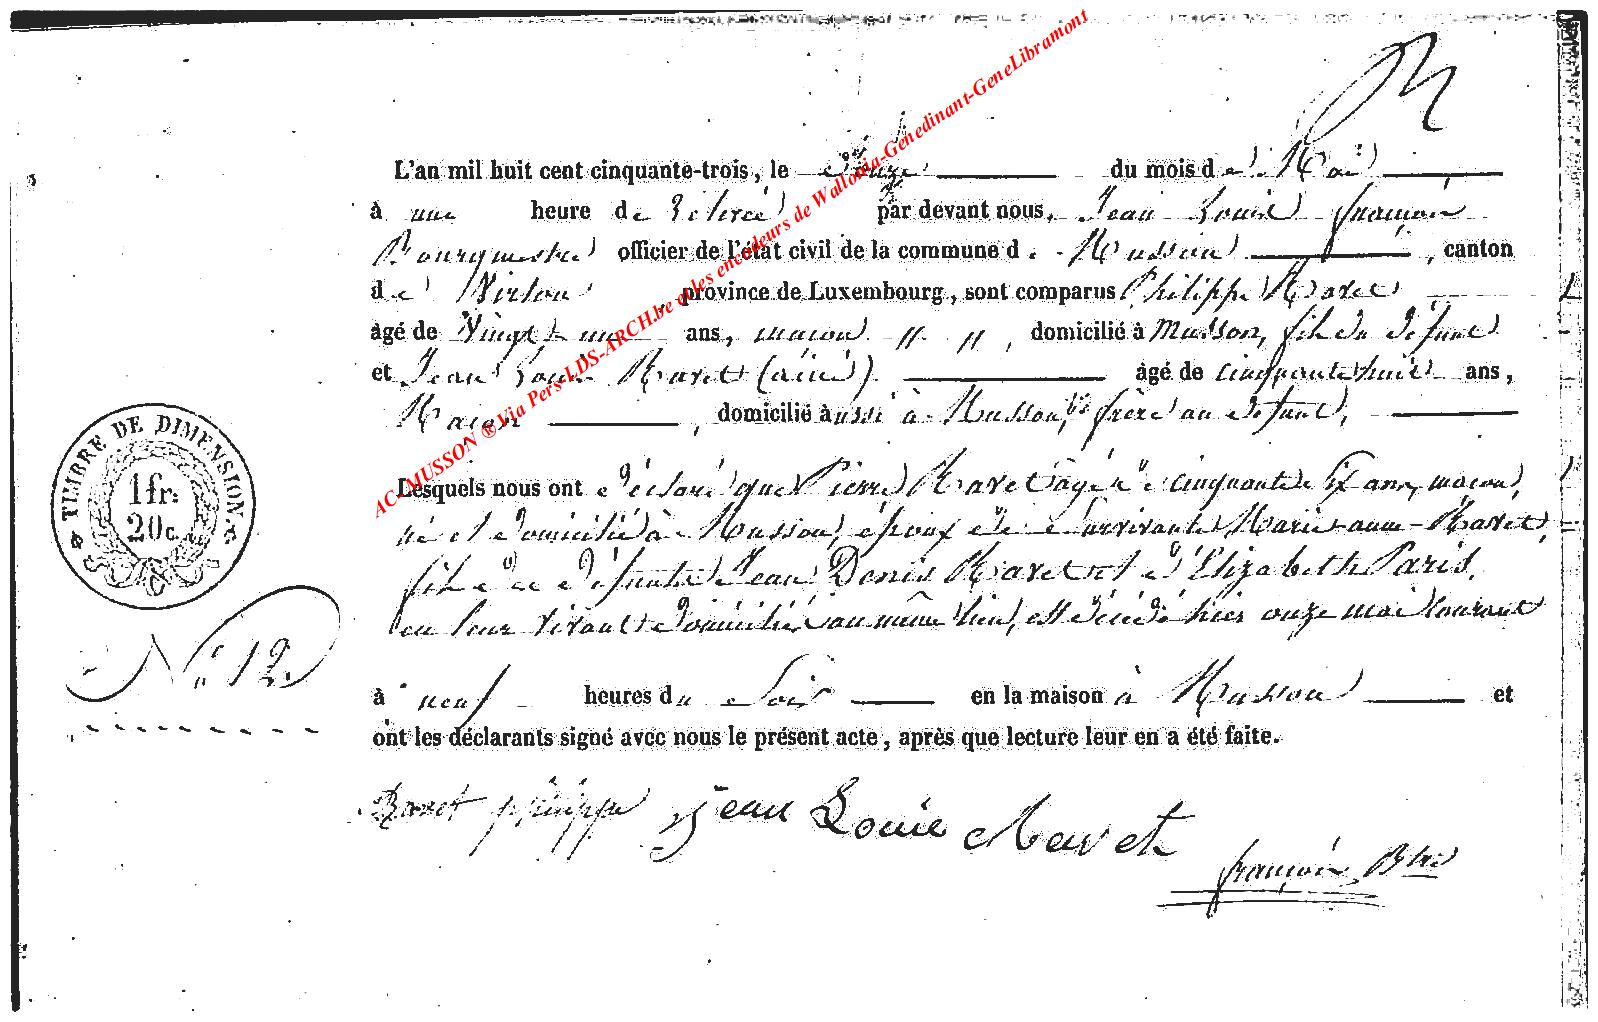 L'an mil huit cent cinquante-trois, le Douze du mois de Mai
à une heure de relevée par devant nous, Jean Louis françois
Bourgmestre officier de l'état civil de la commune de Musson, canton
de Virton, province de Luxembourg, sont comparus Philippe Mavet
âgé de Vingt un ans, macon " ", domicilié à Musson, fils du défunt
et Jean Louis Mavet (ainé) âgé de cinquante huit ans,
Macon, domicilié aussi à Musson, frère au défunt,
Lesquels nous ont déclaré que Pierre Mavet âgé de cinquante six ans, macon,
né et domicilié à Musson, époux de survivante Marie-anne Mavet,
fils de défunts Jean Denis Mavet et d'Elizabeth Paris,
en leur vivant domiciliés au même lieu, est décédé hier onze mai courant
à neuf heures du soir en la maison à Musson et
ont les déclarants signé avec nous le présent acte, après que lecture leur en a été faite.
Mavet philippe Jean Louis Mavet
françois Btre
TIMBRE DE DIMENSION
1 fr:
20 c.
N° 12
AC-MUSSON ® Via Pers-LDS-ARCH.be et les encodeurs de Wallonia-Genedinant-GeneLibramont